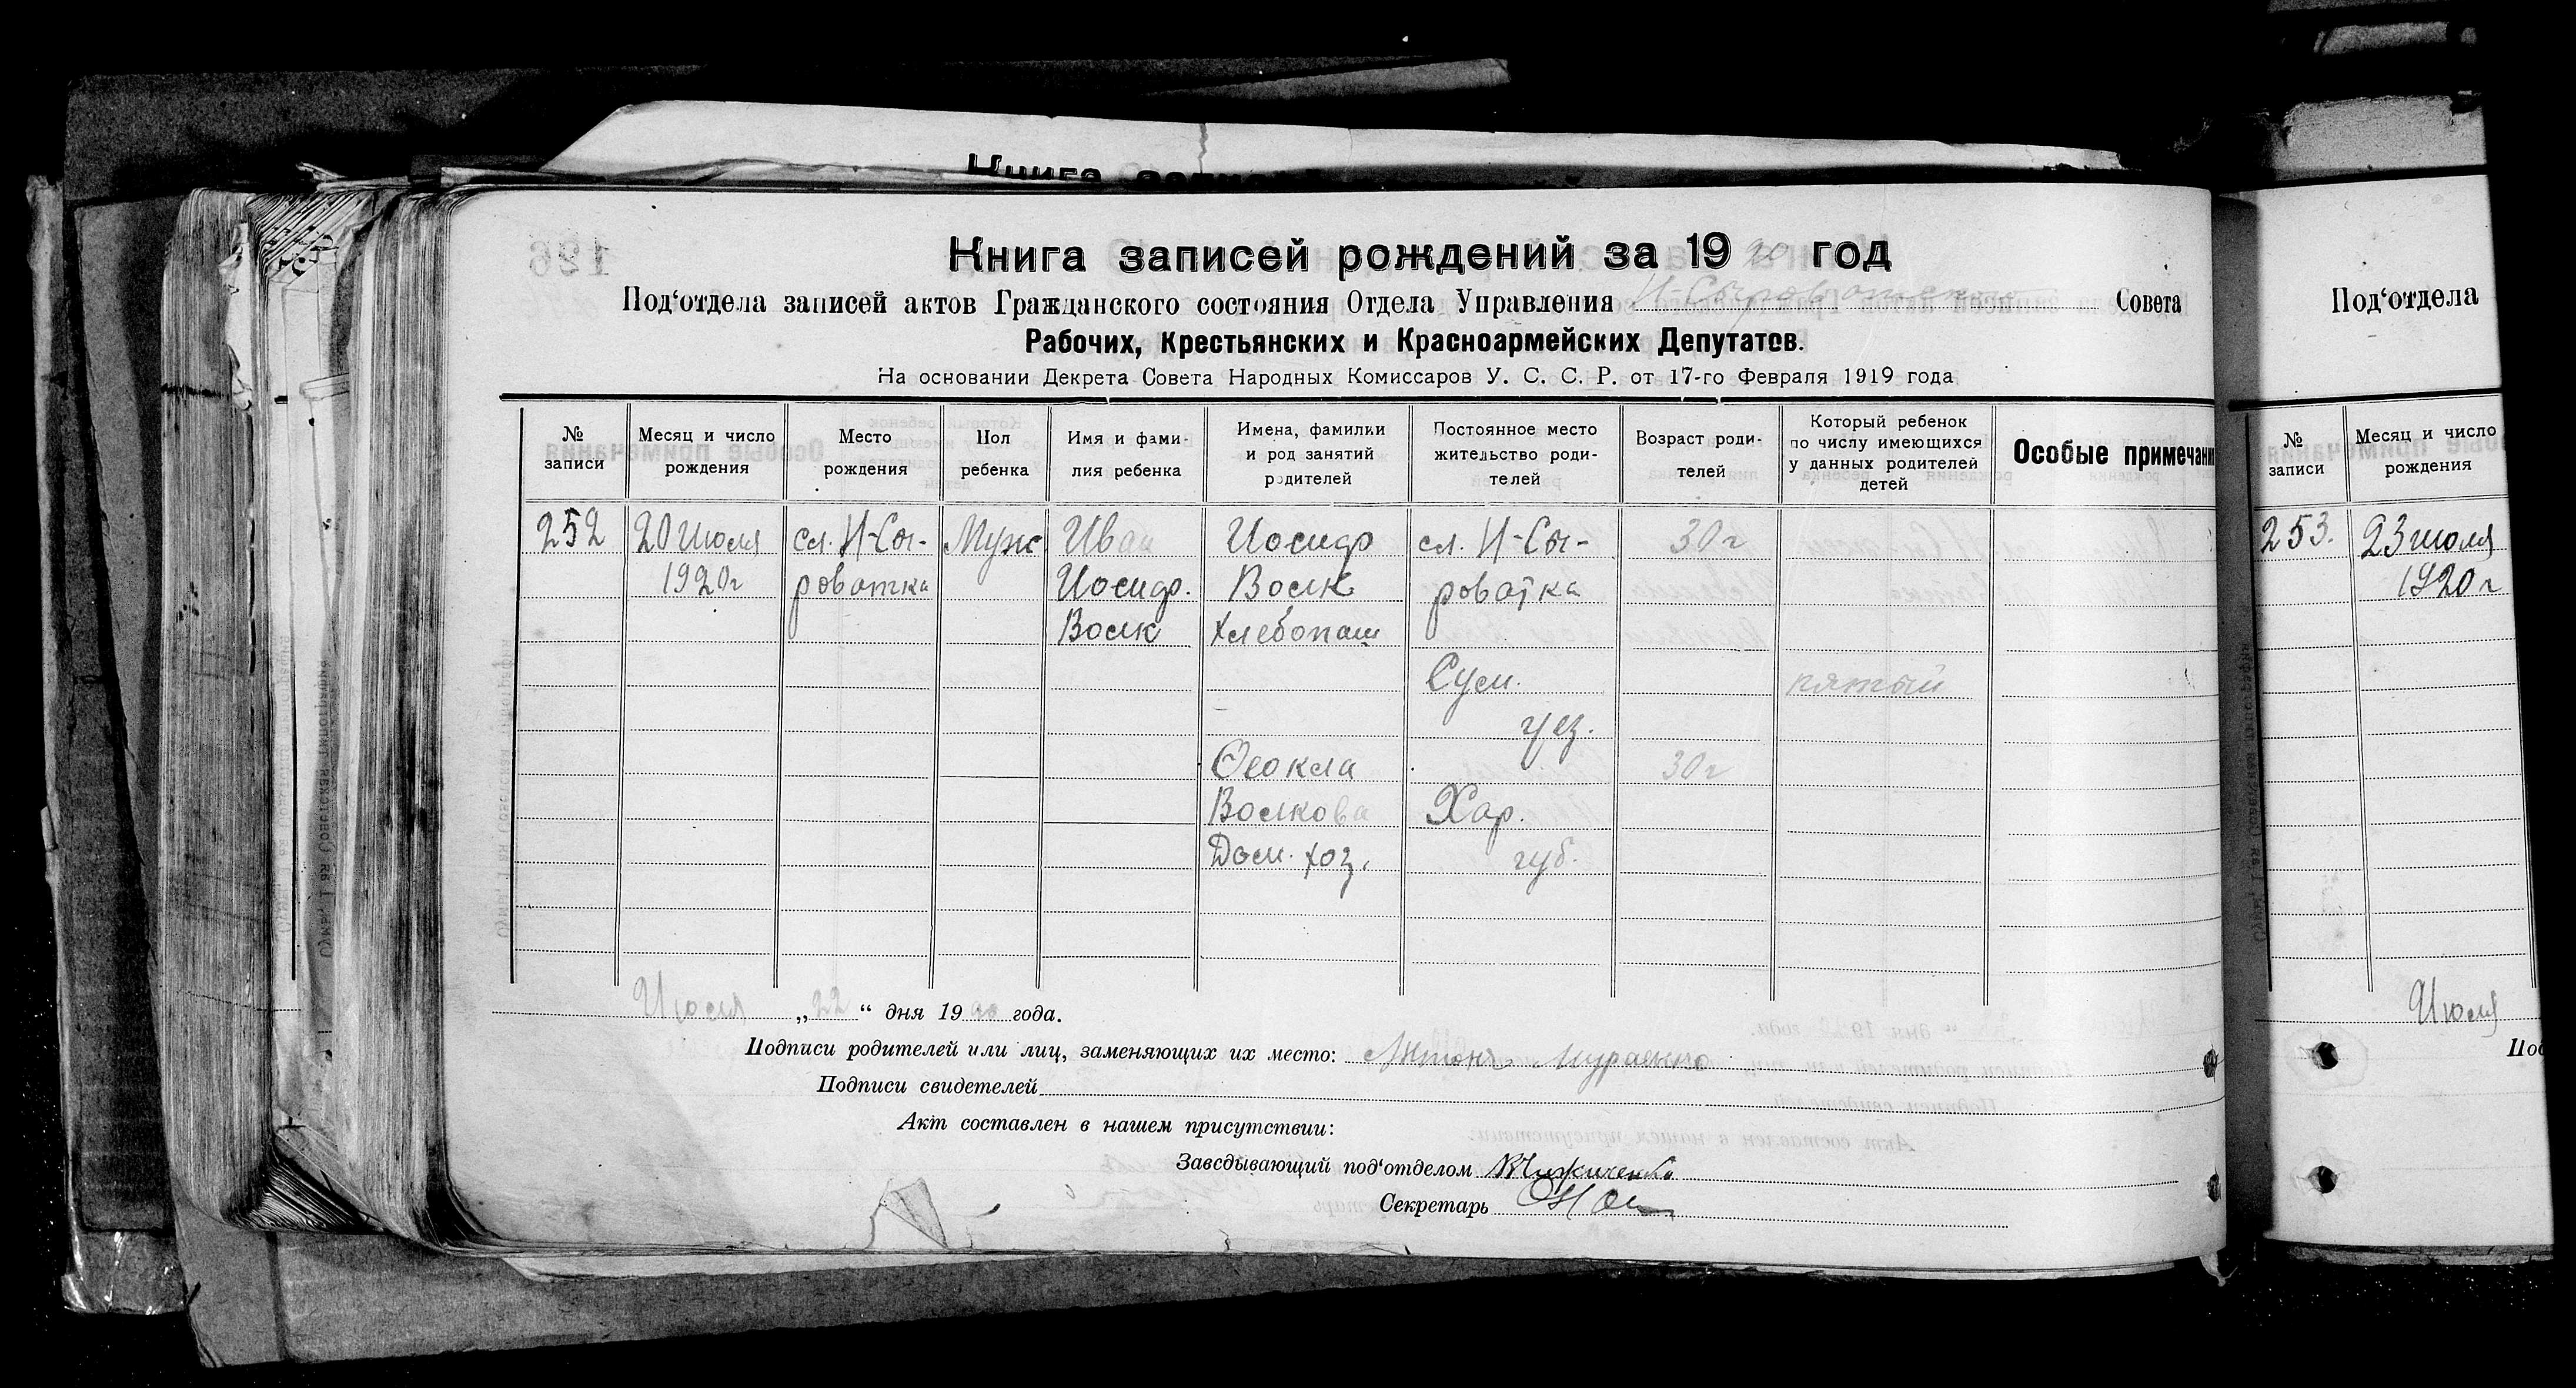 Книга запис
Книга записей рождений за 1920 год
Под‘отдела записей актов Гражданского состояния Отдела Управления Н-Сыроватск Совета
Рабочих, Крестьянских и Красноармейских Депутатов.
На основании Декрета Совета Народных Комиссаров У. С. С. Р. от 17-го Февраля 1919 года
№ записи
Месяц и число рождения
Место рождения
Пол ребенка
Имя и фами-
лия ребенка
Имена, фамилии
и род занятий
родителей
Постоянное место
жительство роди-
телей
Возраст роди-
телей
Который ребенок
по числу имеющихся
у данных родителей
детей
Особые примечани
252
20 Июля
1920г
сл. Н-Сы-
роватка
Муж
Иван
Иосиф.
Волк
Иосиф
Волк
хлебопаш
Феокла
Волкова
Дом. хоз.
сл. Н-Сы-
роватка
Сум.
уез.
Хар.
губ.
30г
30г
пятый
Июля „22“ дня 1920 года.
Подписи родителей или лиц, заменяющих их место: Антон
Подписи свидетелей
Акт составлен в нашем присутствии:
Заведывающий под‘отделом
Секретарь
Под‘отдела
№ записи
Месяц и число рождения
253.
23 июля
1920г
Июля
Под